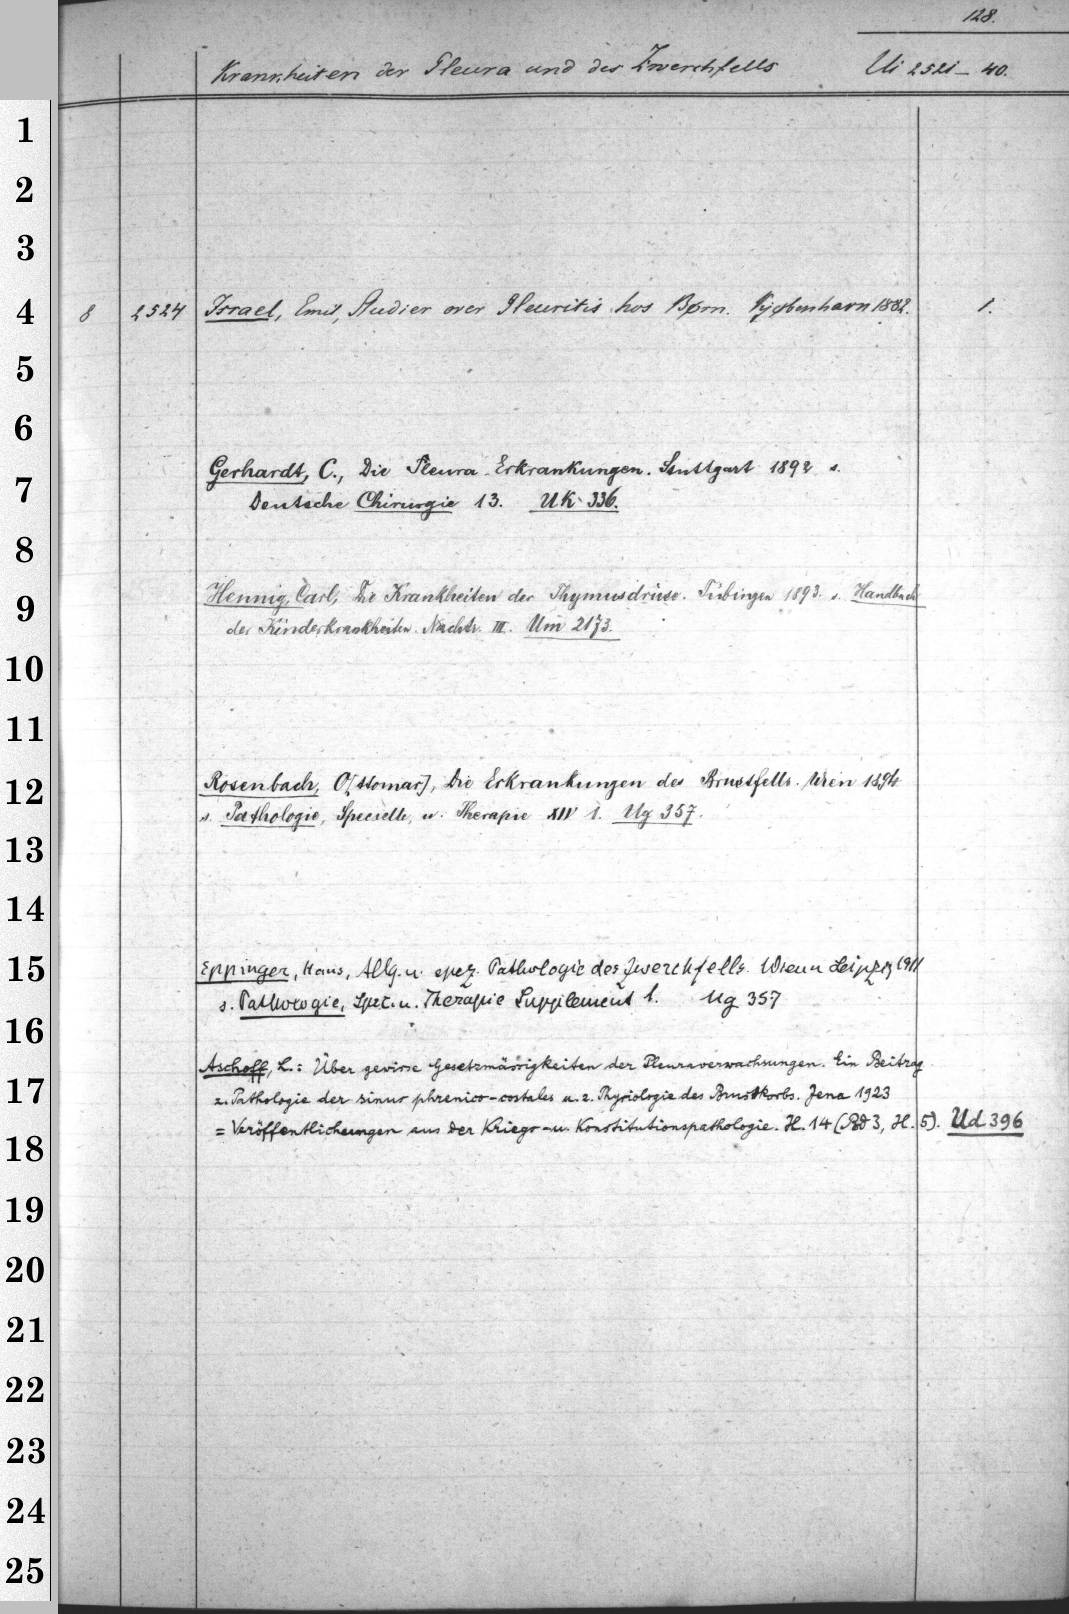 128.
Krankheiten der Pleura und des Zwerchfells Ui 2521-40.
1
2
3
4 8 2524 Israel, Emil, Studier over Pleuritis hos Børn. Kjøbenhavn 1882. 1.
5
6
Gerhardt, C., Die Pleura-Erkrankungen. Stuttgart 1892 s.
7
Deutsche Chirurgie 13. Uk 336.
8
Hennig, Carl, Die Krankheiten der Thymusdrüse. Tübingen 1893. s. Handbuch
9
der Kinderkrankheiten. Nachtr. III. Um 2173.
10
11
Rosenbach, O[ttomar], Die Erkrankungen des Brustfells. Wien 1894
12
s. Pathologie, Specielle, u. Therapie XIV 1. Ug 357.
13
14
15 Eppinger, Hans, Allg. u. spez. Pathologie des Zwerchfells. Wien u Leipzig 1911
s. Pathologie, Spec. u. Therapie Supplement 1. Ug 357
16
Aschoff, L.: Über gewisse Gesetzmässigkeiten der Pleuraverwachsungen. Ein Beitrag
17
z. Pathologie der sinus phrenico-costales u. z. Physiologie des Brustkorbs. Jena 1923
= Veröffentlichungen aus der Kriegs- u. Konstitutionspathologie. H. 14 (Bd 3, H. 5). Ud 396
18
19
20
21
22
23
24
25